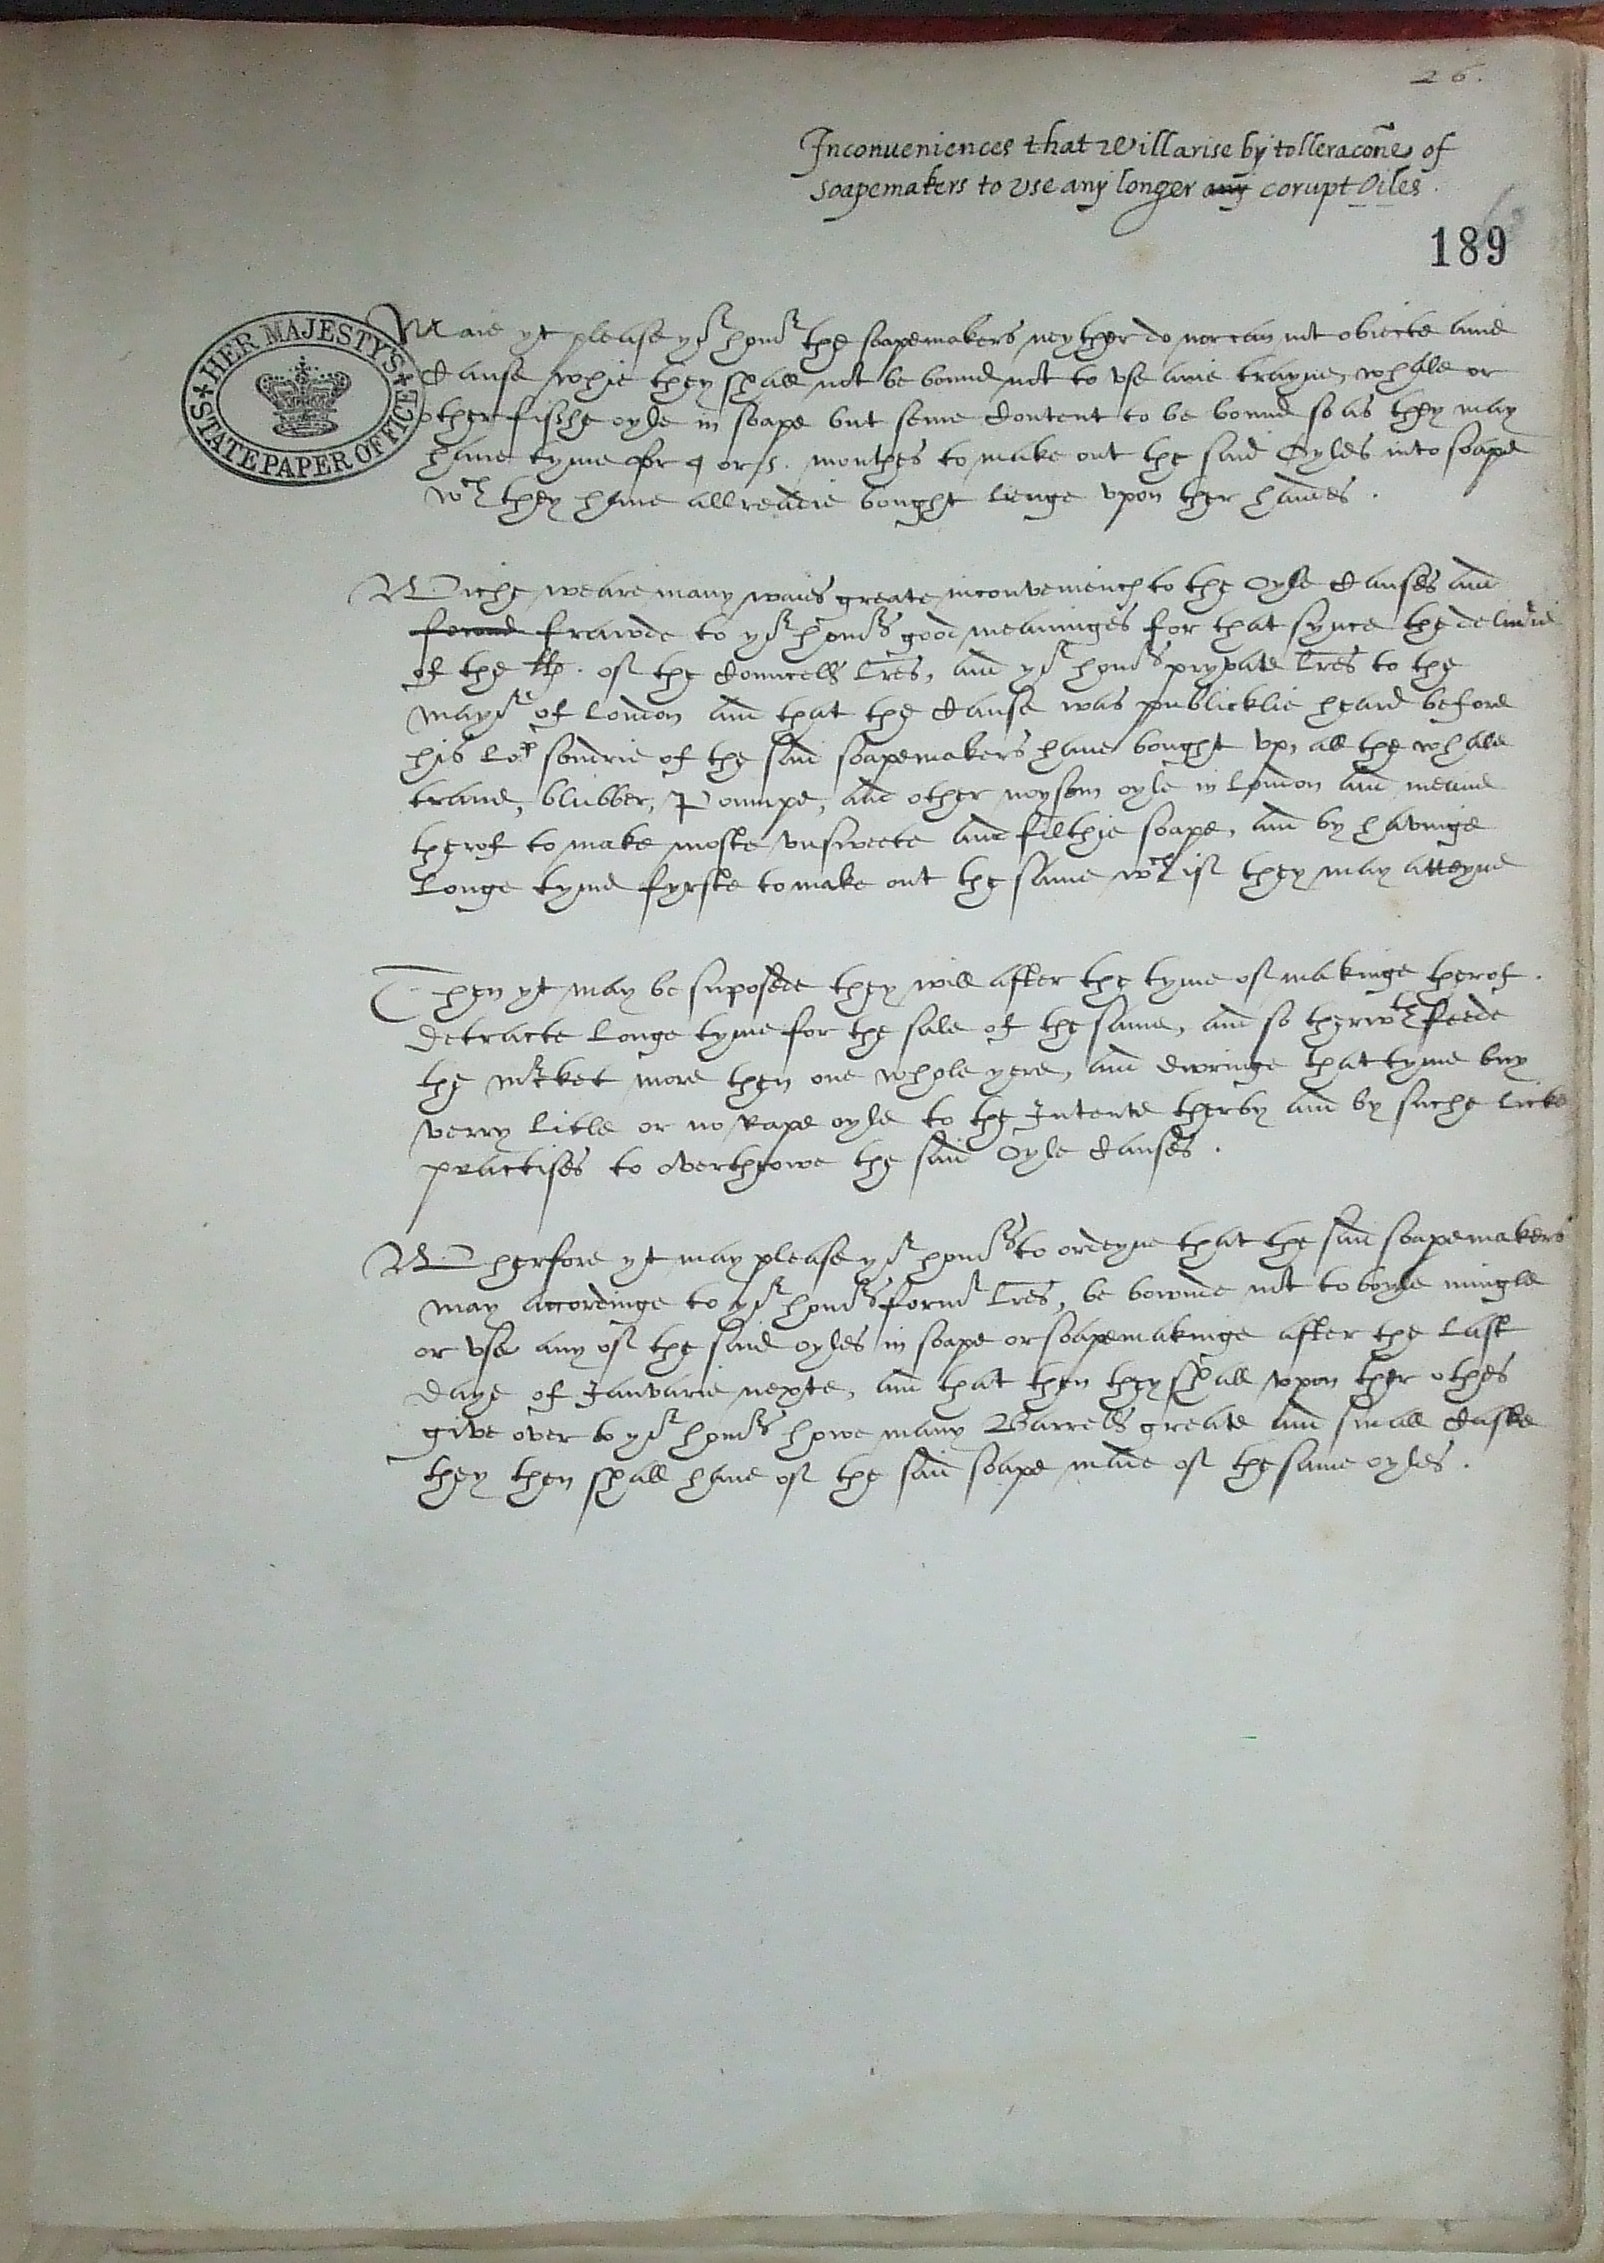 26.
Inconueniences that will arise by tolleracōne of
soapemakers to vse any longer any corupt Oiles.
189
HER MAJESTY'S
STATE PAPER OFFICE
Maie yt please yor honor the soapemakers neyther do nor can not obiecte anie
cause whie they shall not be bound not to vse anie trayne, whale or
other fisshe oyle in soape but seme content to be bound so as they may
haue tyme for 4 or 5. monthes to make out the said Oyles into soape
wch they haue allreadie bought lienge vpon ther handes.
Wiche weare many waies greate inconvenience to the Oyle causes and
frawde to yor honors good meaninges for that synce the deliu'ie
of the llp. of the councells lres, and yor honors pryvate lres to the
mayor of london and that the cause was publicklie heard before
his Lop sondrie of the said soapemakers haue bought vp, all the whale
trane, blubber, Poumpe, and other noysom oyle in london and meane
therof to make moste vnsweete and filthie soape, and by havinge
longe tyme fyrste to make out the same wch if they may atteyne
Then yt may be suposede they will after the tyme of makinge therof.
detracte longe tyme for the sale of the same, and so therwth feede
the m'ket more then one whole yere, and dwringe that tyme buy
verry litle or no Rape oyle to the Intente therby and by suche licke
practises to overthrowe the said Oyle causes.
Wherfore yt may please yor honors to ordeyne that the said soapemakers
may accordinge to yor honors formr lres, be bownde not to boyle mingle
or vse any of the said oyles in soape or soapemakinge after the last
daye of Januarie nexte, and that then they shall vpon ther othes
give over to yor honors howe many Barrells greate and small caske
they then shall haue of the said soape made of the same oyles.